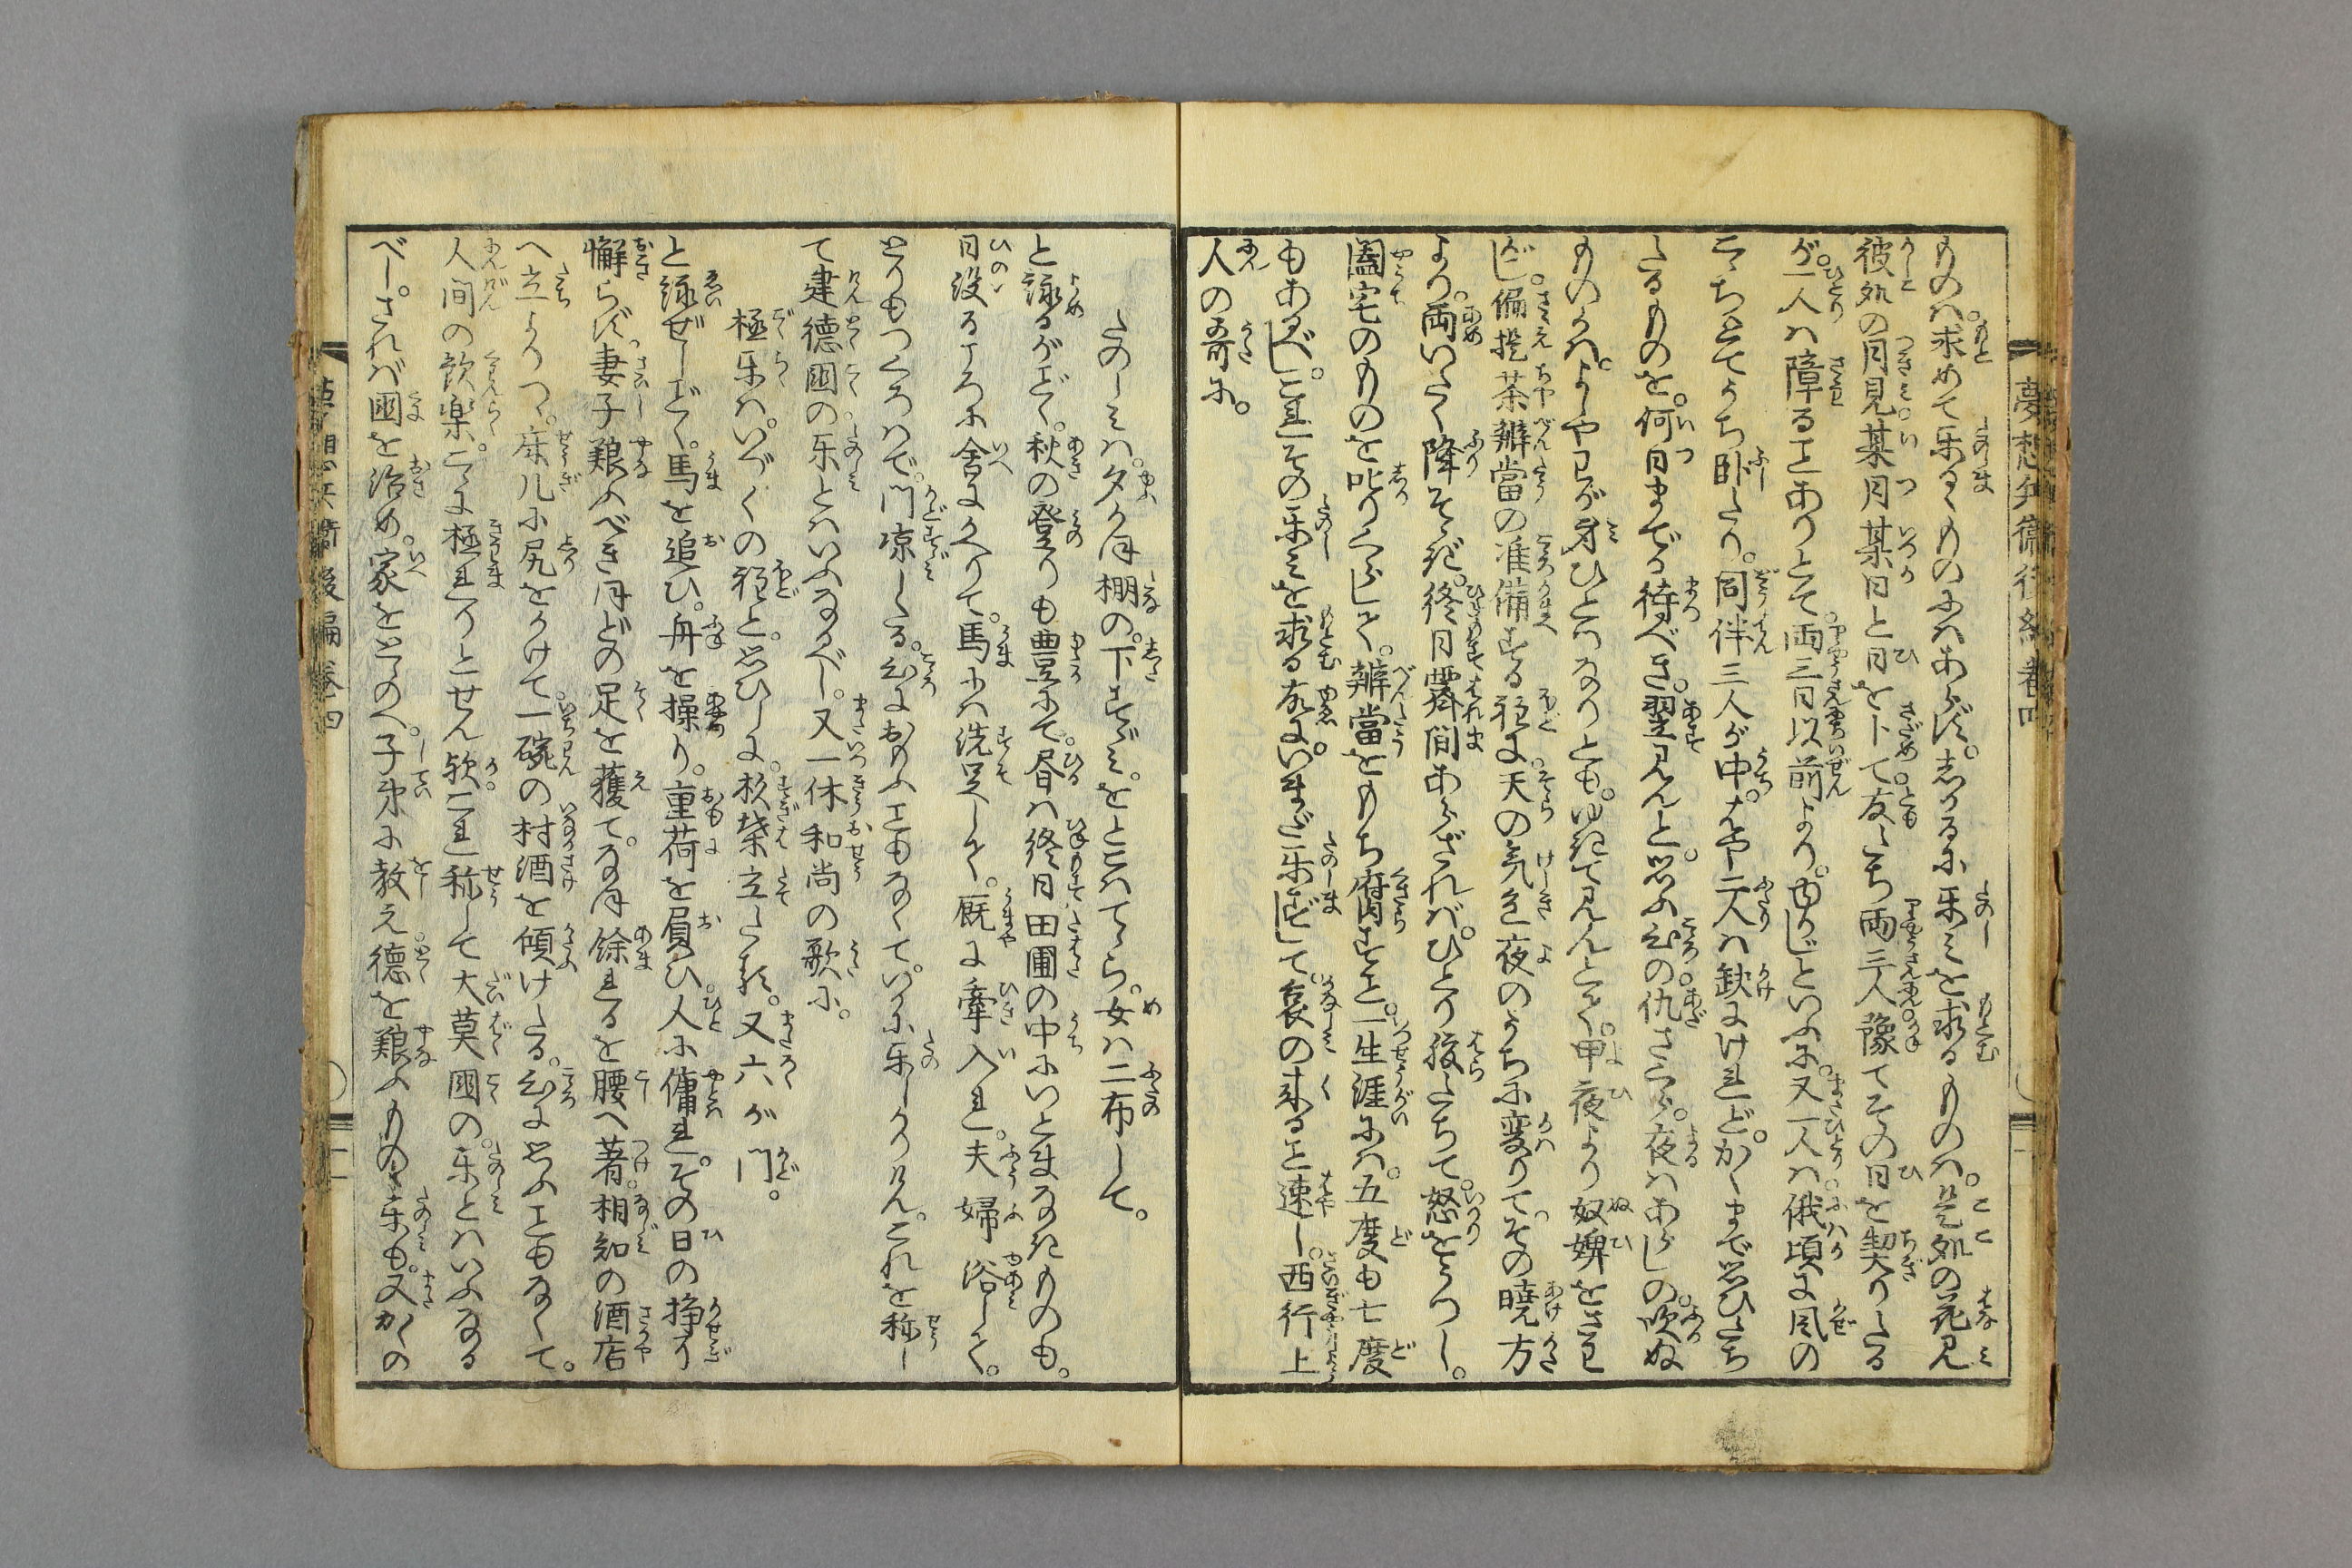 夢想兵衛後編巻四
ものハ。求めて樂るゝものにハあらず。しかるに樂ミを求るものハ。是処の花見
彼処の月見。某月某日と日を卜て。友だち両三人豫てその日を契りたる
が。一人ハ障る事ありとて。両三日以前より。ゆかじといふに。又一人ハ俄頃に風の
こゝちとてうち臥たり。同伴三人が中。はや二人ハ缺にけれど。かくまで思ひたち
たるものを。何日まてか待べき。翌見んと。思ふ心の仇ざくら。夜ハあらしの。吹ぬ
ものかハ。よしやわが身ひとつなりとも。ゆきて見んとて。甲夜より奴婢をさわ
がし。偏提茶辨當の准備する程に。天の気色夜のうちに変りて。その曉方
より。雨いたく降そゝぎ。終日霽間あらざれバ。ひとり腹たちて。怒をうつし。
闔宅のものを叱りくらして。辨當をもち腐する事。一生涯にハ。五度も七度
もあるべし。これその樂ミを求る故に。いまだ樂ずして。哀の来る事速し。西行上
人の哥に。
たのしミハ。夕がほ棚の。下すゞミ。をとこハてゝら。女ハ二布して。
と詠るがごとく。秋の登りも豊にて。昼ハ終日田圃の中にいとまなきものも。
日没るころに舎にかへりて。馬にハ洗足して。厩に牽入れ。夫婦浴して。
とりもつくろハで。門凉したる。心におもふ事もなくて。いかに樂しかりけん。これを称し
て建徳國の。樂とハいふなるべし。又一休和尚の歌に。
極樂ハ。いづくの程と。思ひしに。杉葉立たる。又六が門。
と詠ぜしごとく。馬を追ひ。舟を操り。重荷を負ひ。人に傭れ。その日の挣り
懈らず。妻子艱ふべきほどの足を獲て。なほ餘れるを腰へ著。相知の酒店
へ立よりつゝ。床几に尻をかけて。一碗の村酒を傾けたる。心に思ふ事もなくて。
人間の歓樂。こゝに極れりとせん歟。これ称して大莫國の。樂とハいふなる
べし。されバ國を治め。家をとゝのへ。子弟に教え徳を艱ふものゝ樂も。又かくの
夢想兵衛後編巻四